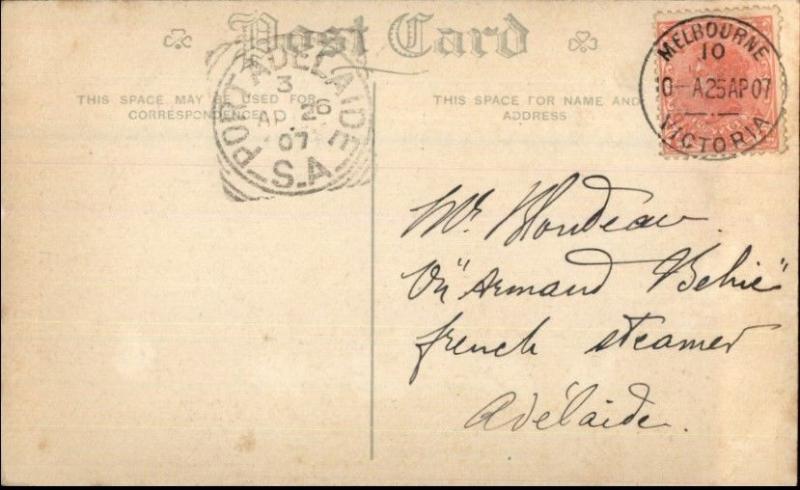 Post Card
THIS SPACE MAY BE USED FOR
CORRESPONDENCE
THIS SPACE FOR NAME AND
ADDRESS
PORT ADELAIDE
3
AP 26
07
S.A
MELBOURNE
10
0-A 25 AP 07
VICTORIA
Mr. Blondeau
"Armand Behic"
french steamer
Adélaide.